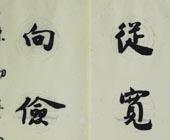 從寬
向儉